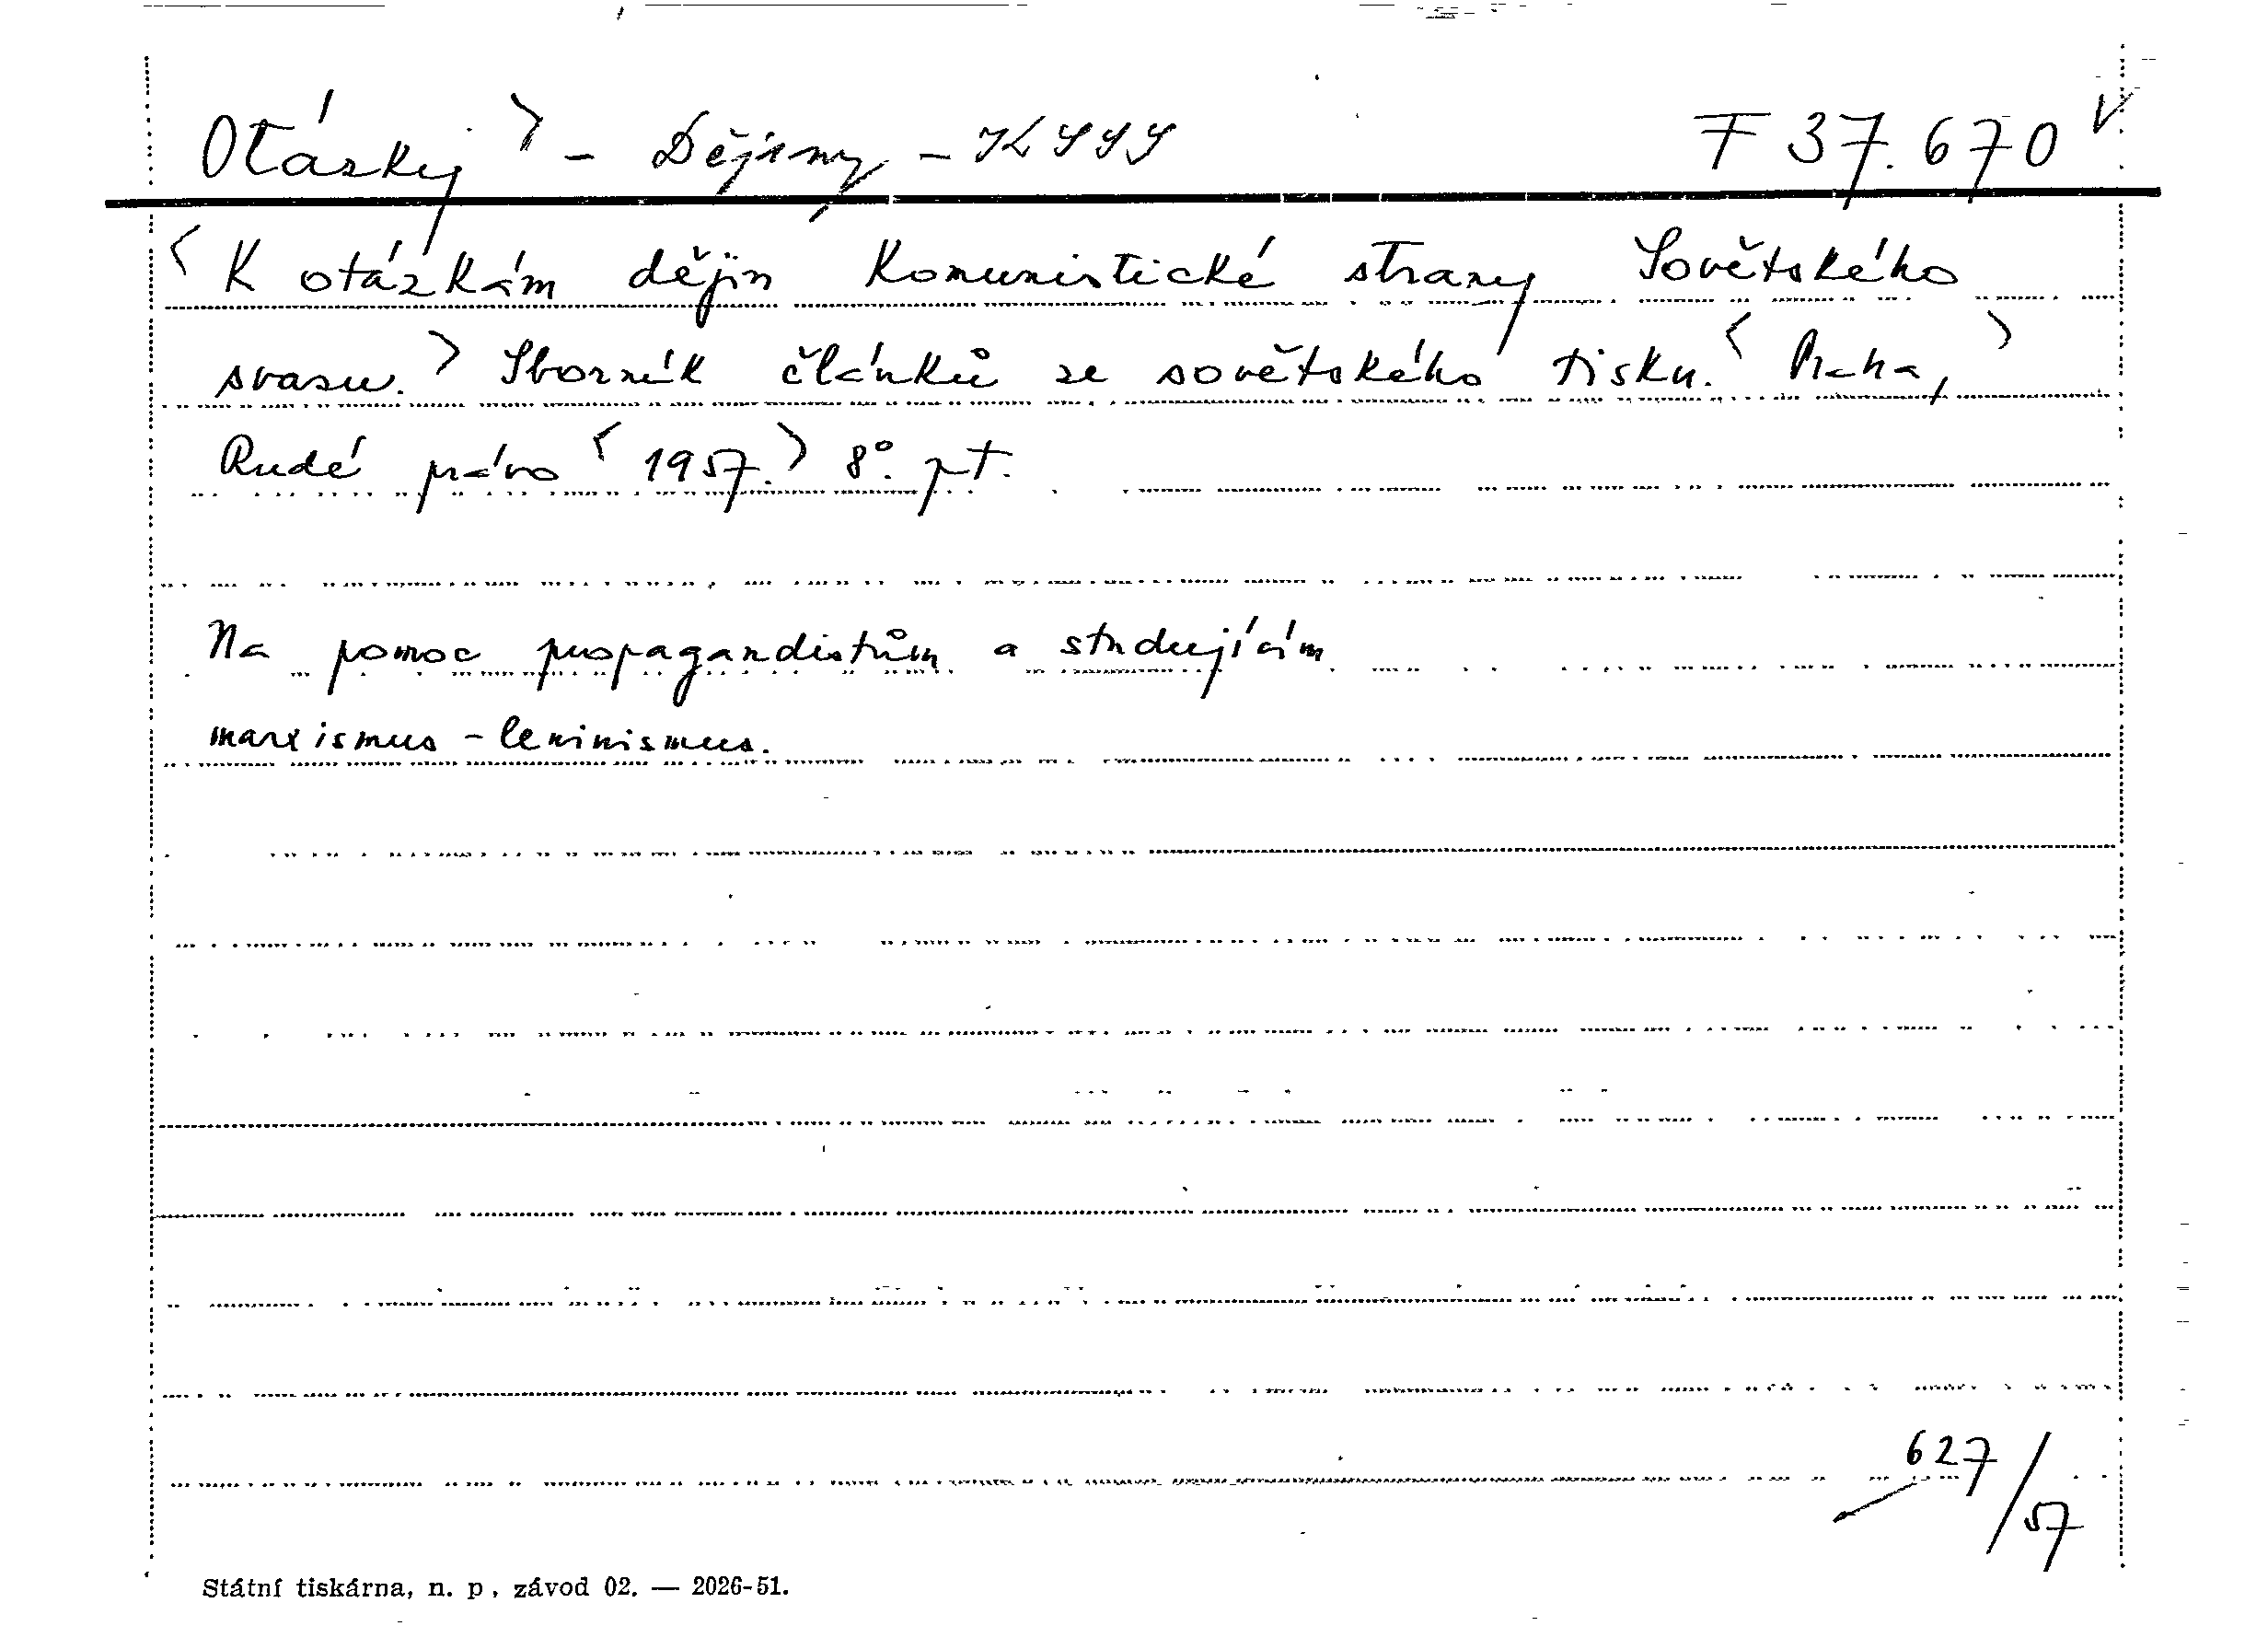 Otázky > - Dějiny - KSSS F 37.670 V
< K otázkám dějin Komunistické strany Sovětského
svasu. > Sborník článků ze sovětského tisku. < Praha, >
Rudé právo < 1957. > 8°. pt.
Na pomoc propagandistům a studujícím
marxismus - leninismus.
627/57
Státní tiskárna, n. p., závod 02. — 2026-51.